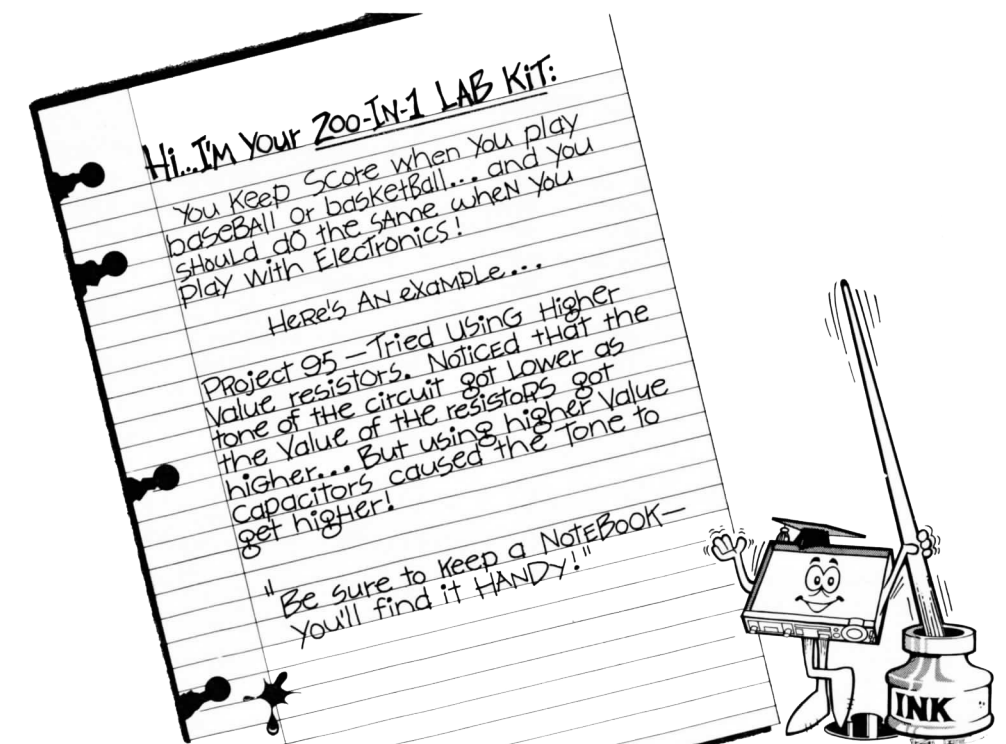 Hi...I'M Your 200-IN-1 LAB KiT:
You Keep Score when You play
baseBAll or basketBall... and You
sHould dO the sAme wheN You
play with ElecTronics!
HeRe's AN exaMPLe...
PRoject 95 —Tried UsinG Higher
Value resisTors. NoTicED tHat the
tone of tHe circuit got Lower as
the Value of tHe resistoRs got
hiGher... But using higHer Value
capaciTors caused the Tone to
get higHer!
"Be sure to Keep a NoTEBooK—
You'll find it HANDy!"
INK